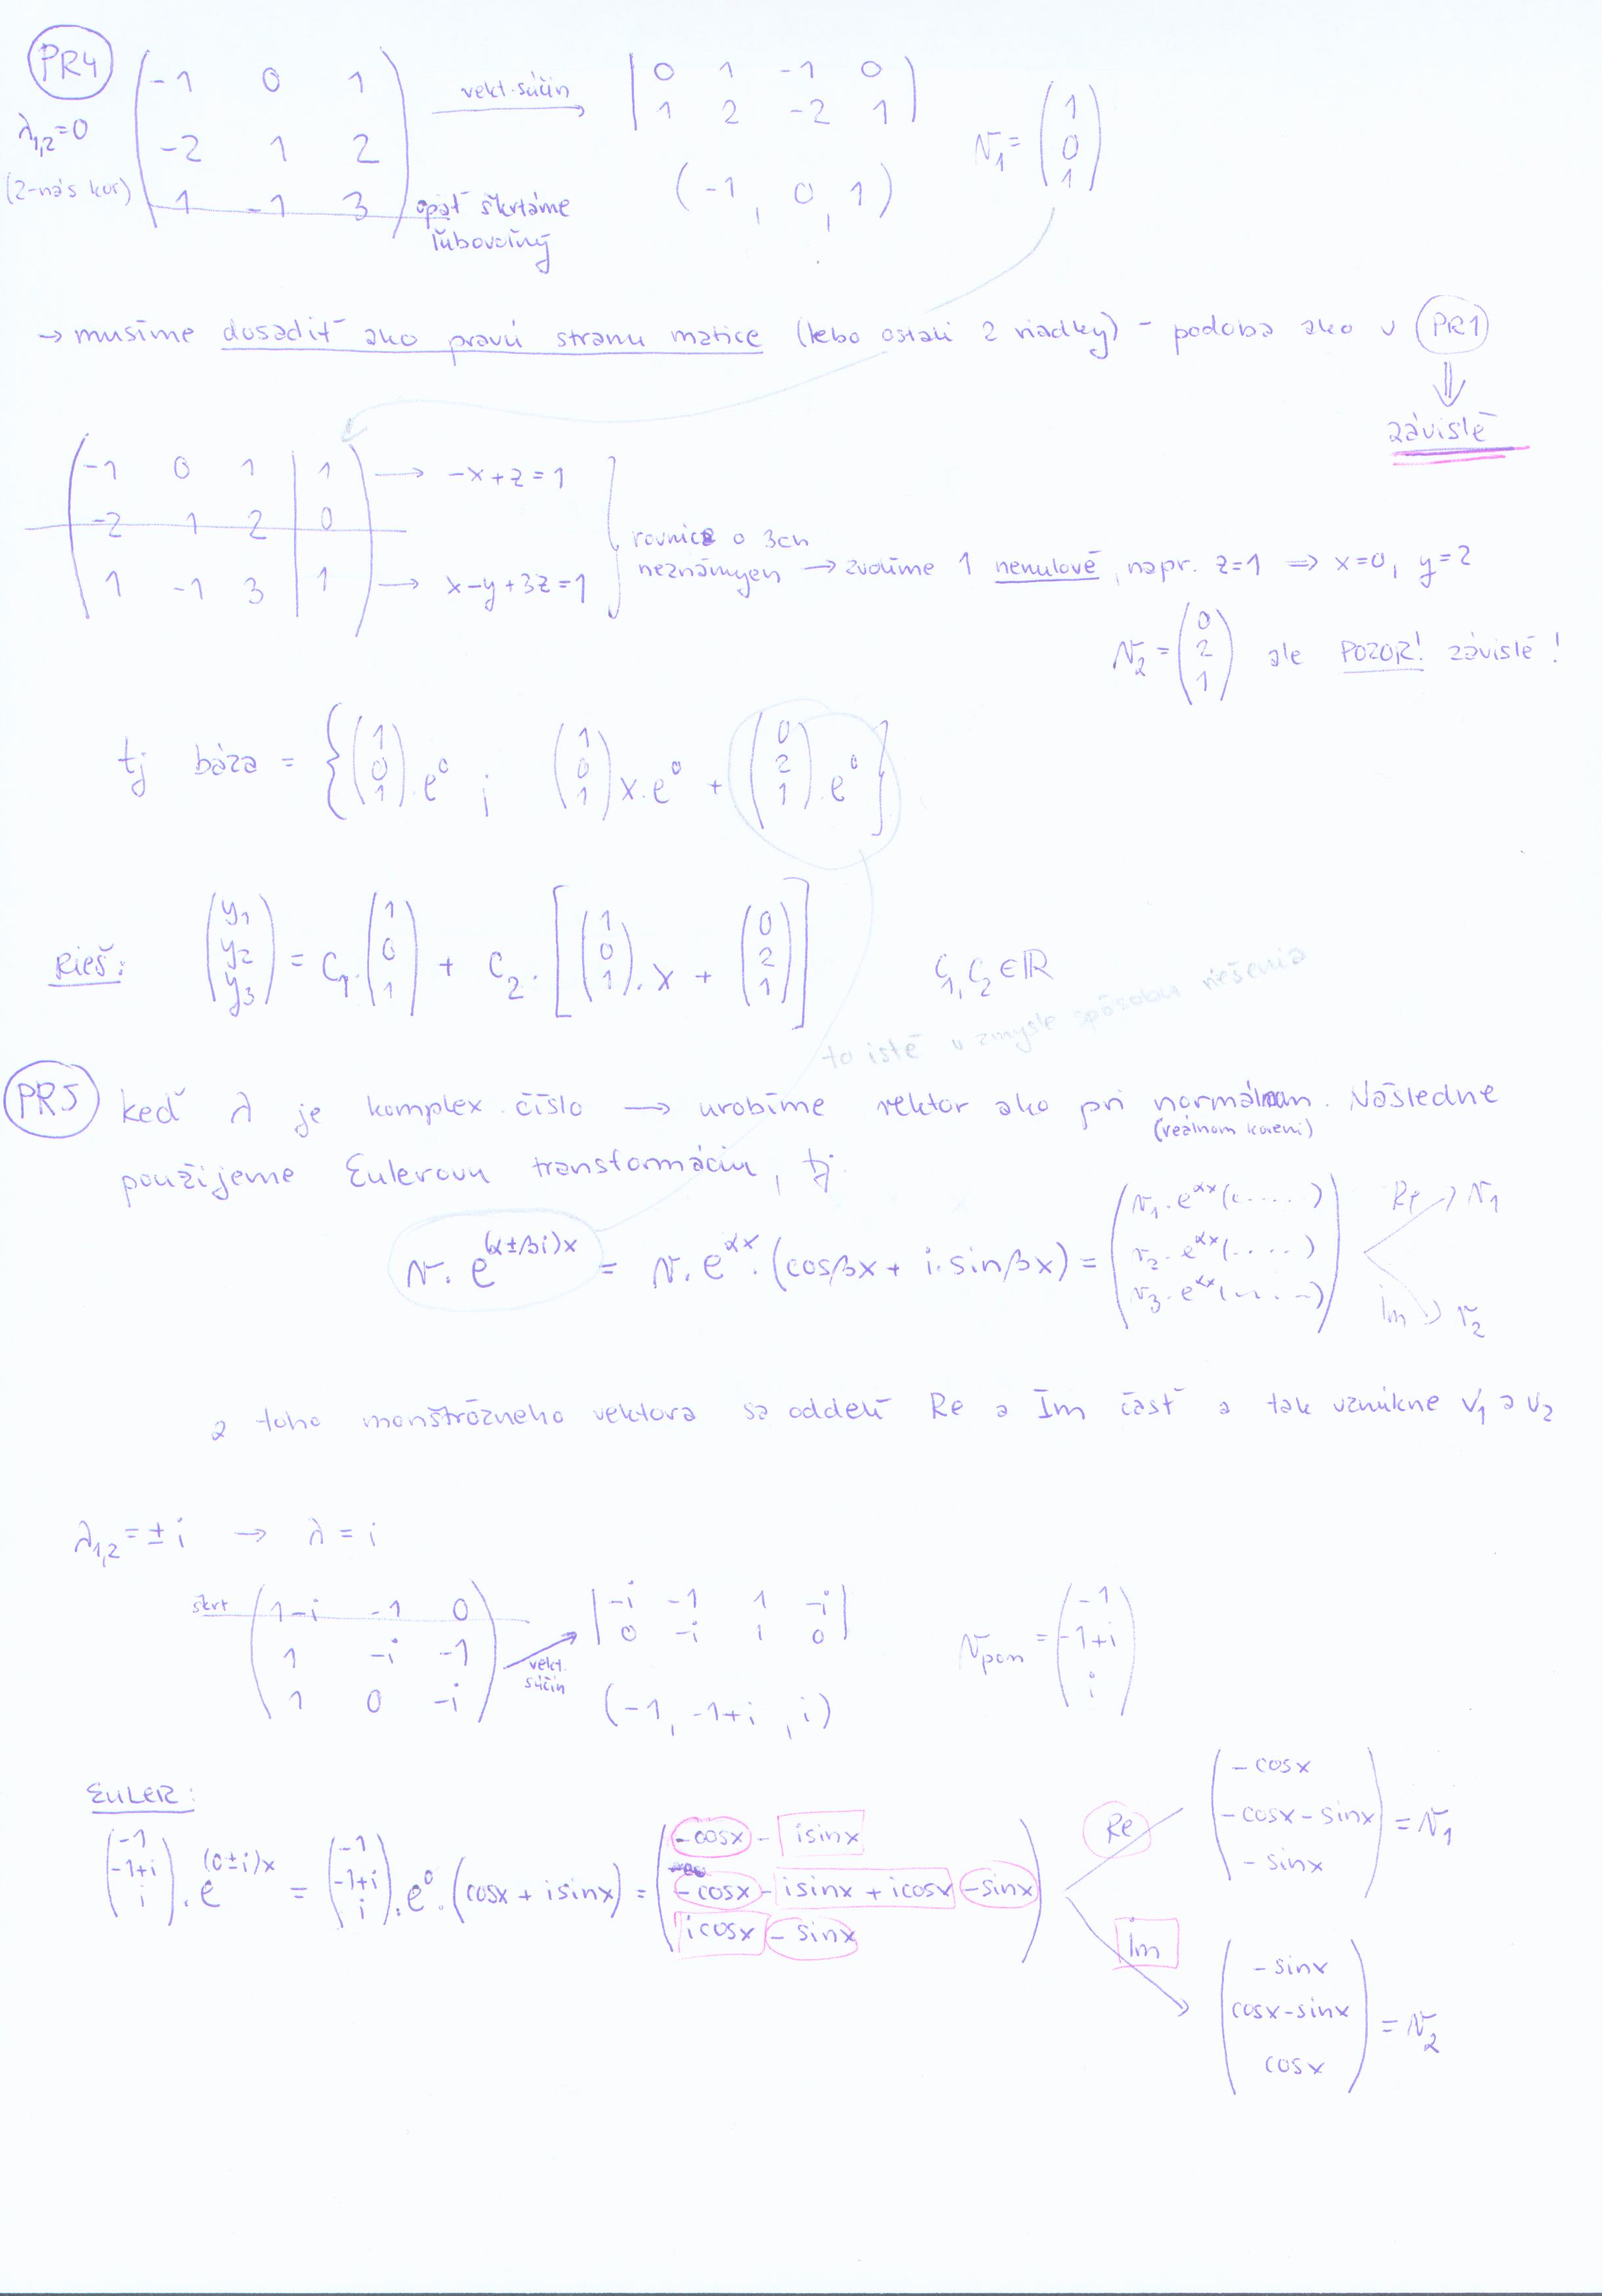 PR4
λ1,2=0
(2-nás kor)
-1 0 1
-2 1 2
1 -1 3
vekt. súčin
opäť škrtáme
ľubovoľný
0 1 -1 0
1 2 -2 1
(-1, 0, 1)
v1 = (1 0 1)
→ musíme dosadiť ako pravú stranu matice (lebo ostali 2 riadky) - podoba ako v PR1
⇓
závislé
-1 0 1 | 1 → -x+z=1
-2 1 2 | 0
1 -1 3 | 1 → x-y+3z=1
rovnice o 3ch
neznámych → zvolíme 1 nenulové, napr. z=1 ⇒ x=0, y=2
v2 = (0 2 1) ale POZOR! závislé!
tj báza = {(1 0 1).e^0 ; (1 0 1) x.e^0 + (0 2 1).e^0}
Rieš: (y1 y2 y3) = C1.(1 0 1) + C2.[(1 0 1).x + (0 2 1)] C1, C2 ∈ ℝ
to isté v zmysle spôsobu riešenia
PR5 keď λ je komplex. číslo → urobíme vektor ako pri normálnom. Následne
(reálnom koreni)
použijeme Eulerovu transformáciu, tj.
v. e^(α±βi)x = v. e^αx.(cosβx + i.sinβx) = (v1. e^αx(.....) v2. e^αx(.....) v3. e^αx(.....))
Re → v1
Im → v2
z toho monštrózneho vektora sa oddelí Re a Im časť a tak vznikne v1 a v2
λ1,2 = ±i → λ = i
škrt
1-i -1 0
1 -i -1
1 0 -i
vekt.
súčin
-i -1 1 -i
0 -i i 0
(-1, -1+i, i)
vpom = (-1 -1+i i)
EULER:
(-1 -1+i i).e^(0±i)x = (-1 -1+i i).e^0.(cosx + isinx) =
-cosx - isinx
-cosx - isinx + icosx - sinx
icosx - sinx
Re
-cosx
-cosx - sinx
-sinx
= v1
Im
-sinx
cosx-sinx
cosx
= v2